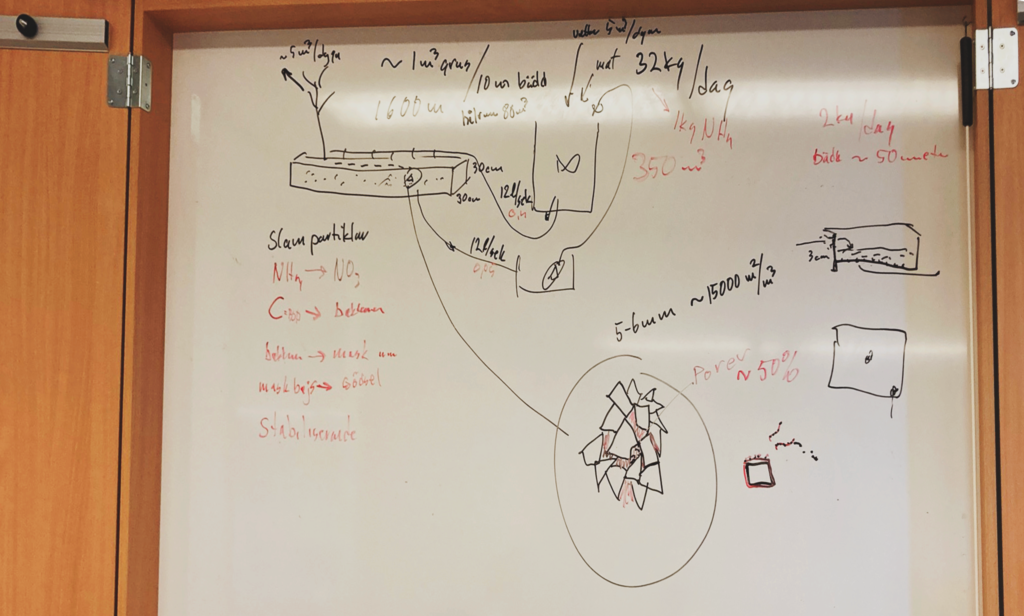 ~ 5 m³/dygn
~ 1 m³ grus / 10 m bädd
1600 m
vatten 5 m³/dygn
mat
32 kg/dag
1 kg NH4
350 m³
2 kg/dag
bädd ~ 50 meter
30cm
30cm
12 l/sek
0,4
12 l/sek
Slam partiklar
NH4 → NO3
→ bakterier
→ mask
mask bajs → gödsel
Stabiliserande
3cm
5-6mm ~ 15000 m²/m³
Porer
~ 50%